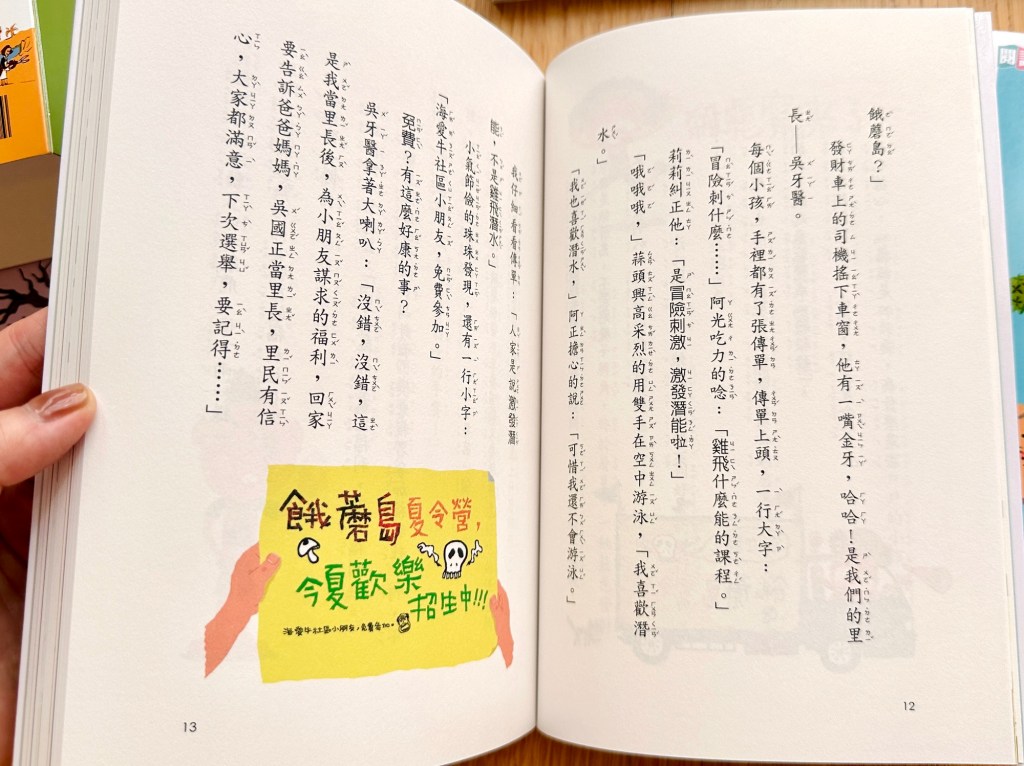 餓蘑島？」
發財車上的司機搖下車窗，他有一嘴金牙，哈哈！是我們的里
長——吳牙醫。
每個小孩，手裡都有了張傳單，傳單上頭，一行大字：
「冒險刺什麼……」阿光吃力的唸：「雞飛什麼能的課程。」
莉莉糾正他：「是冒險刺激，激發潛能啦！」
「哦哦哦，」蒜頭興高采烈的用雙手在空中游泳，「我喜歡潛
水。」
「我也喜歡潛水，」阿正擔心的說：「可惜我還不會游泳。」
12
我仔細看看傳單：「人家是說激發潛
能，不是雞飛潛水。」
小氣節儉的珠珠發現，還有一行小字：
「海愛牛社區小朋友，免費參加。」
免費？有這麼好康的事？
吳牙醫拿著大喇叭：「沒錯，沒錯，這
是我當里長後，為小朋友謀求的福利，回家
要告訴爸爸媽媽，吳國正當里長，里民有信
心，大家都滿意，下次選舉，要記得……」
餓蘑島夏令營，
今夏歡樂
招生中!!!
海愛牛社區小朋友，免費參加。
13